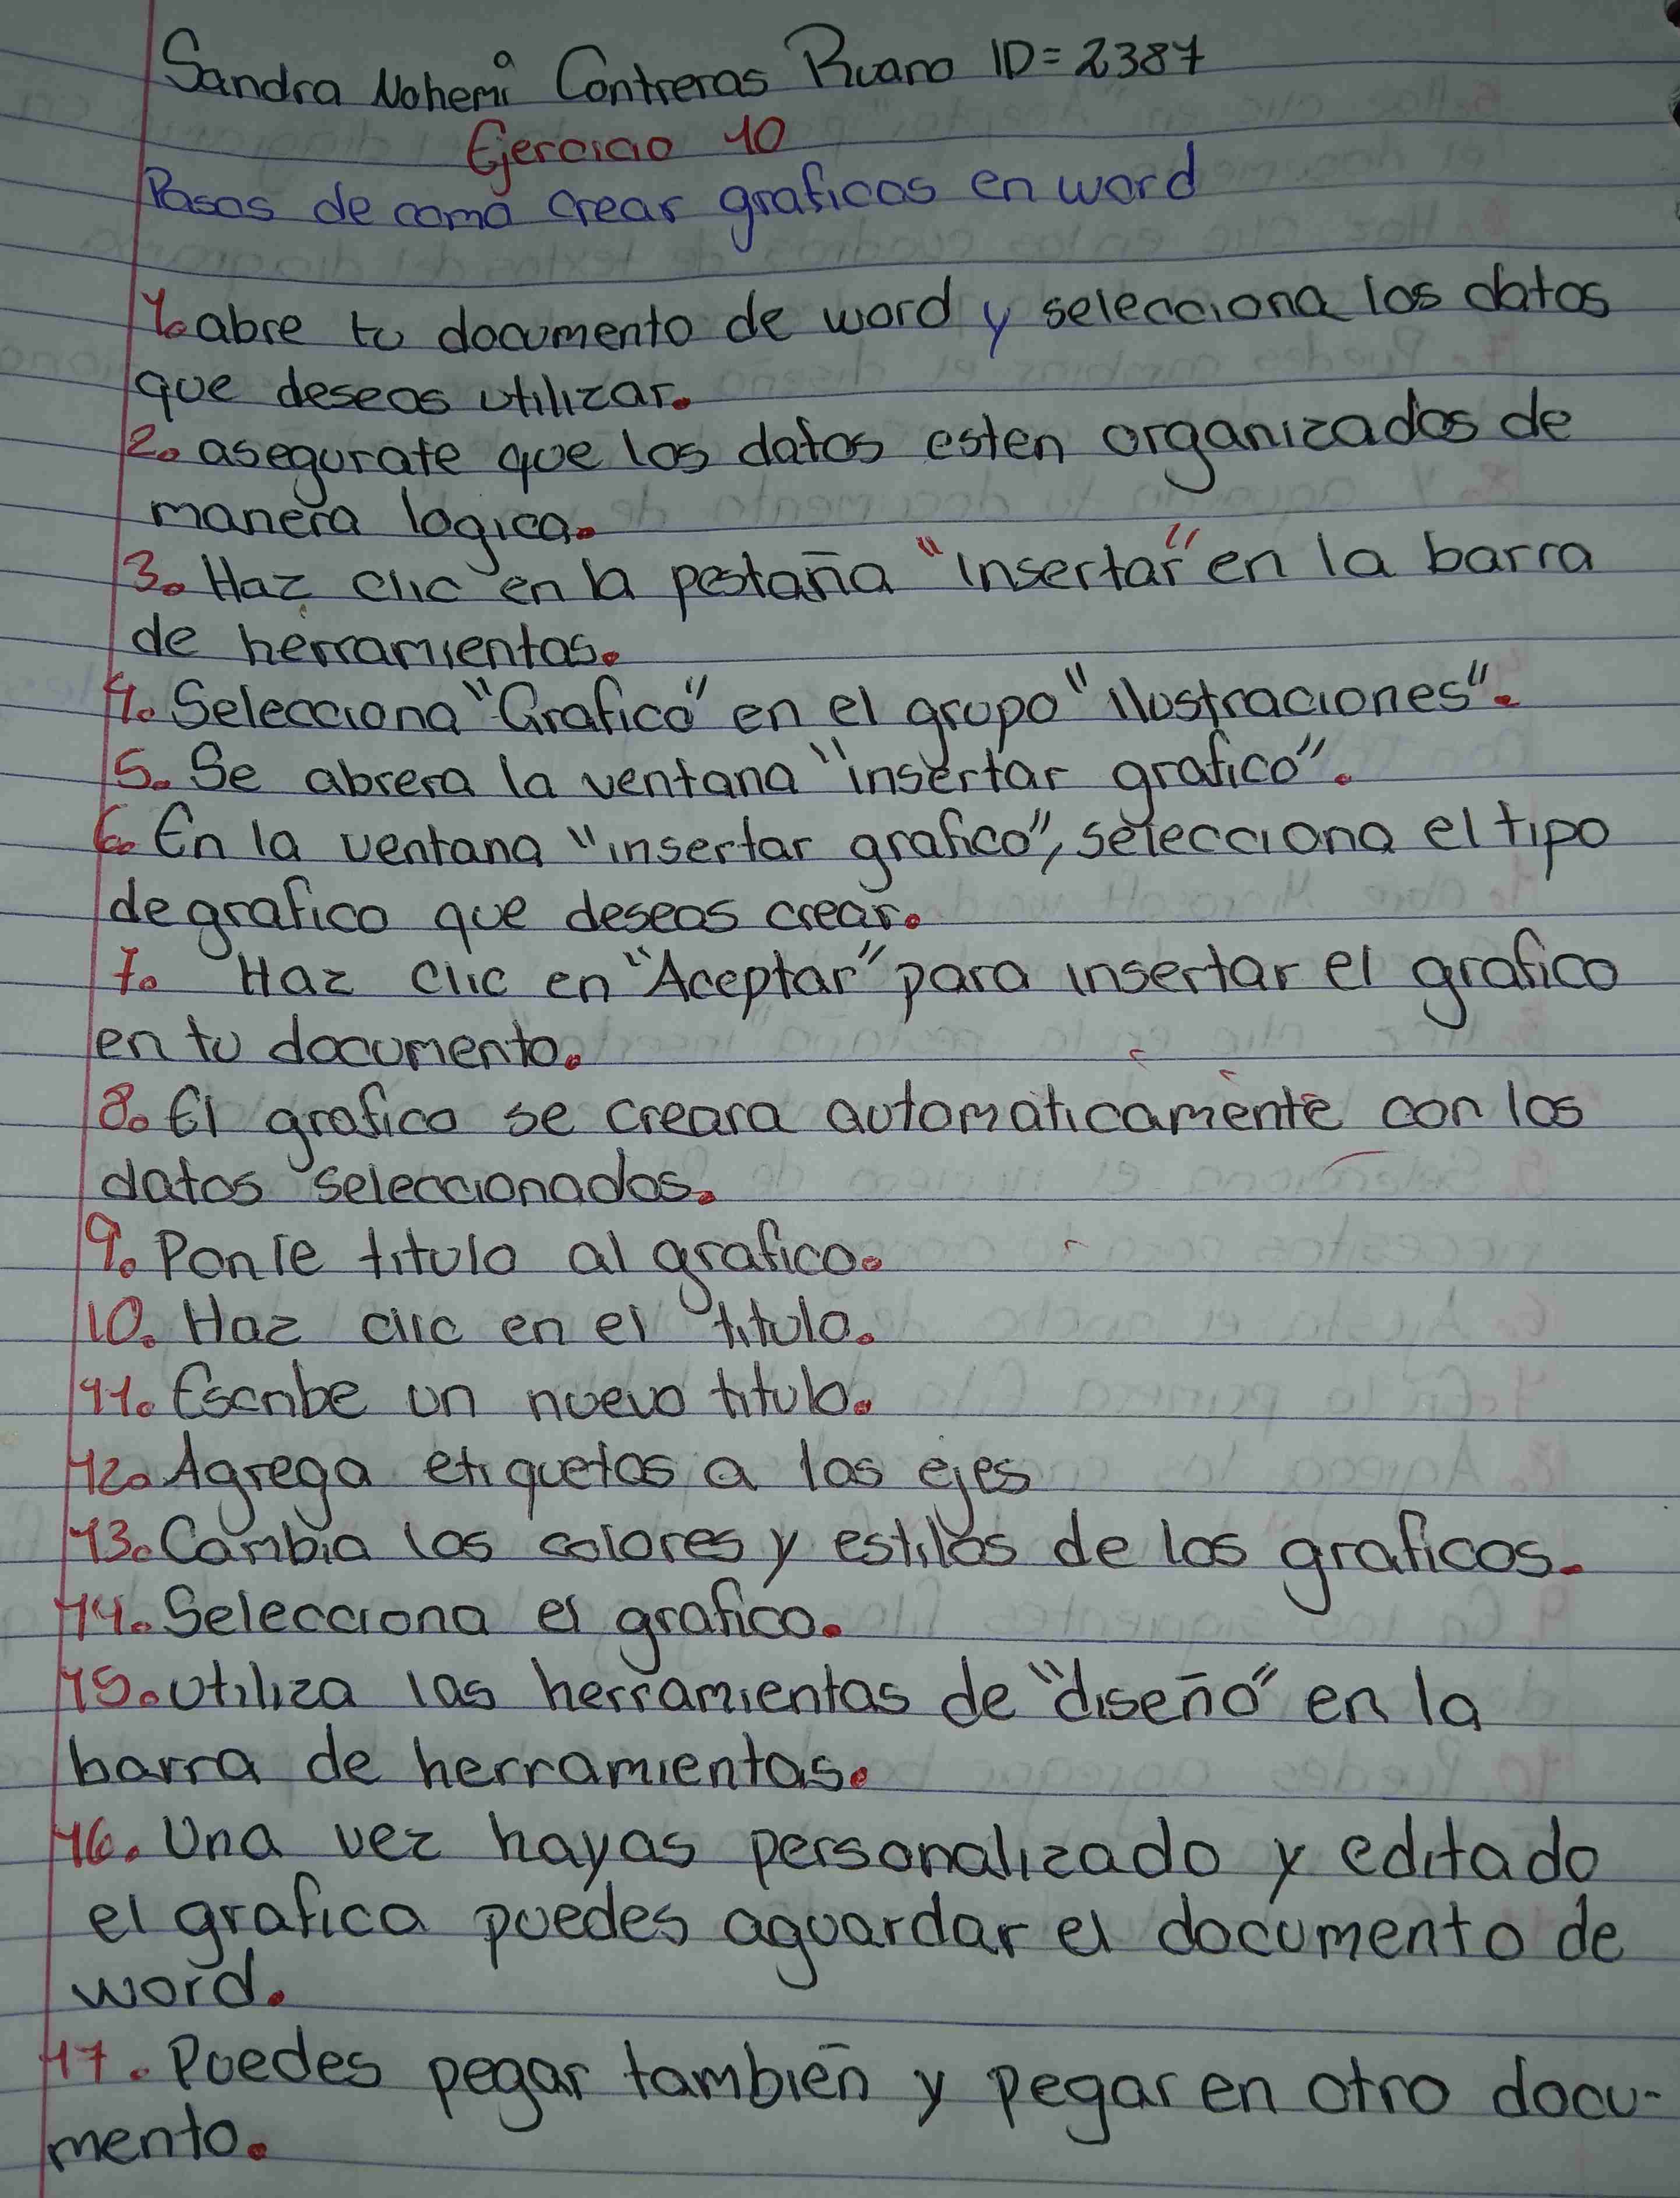 Sandra Nohemi Contreras Ruano ID=2387
Ejercicio 10
Pasos de como crear graficos en word
1. abre tu documento de word y selecciona los datos
que deseas utilizar.
2. asegurate que los datos esten organizados de
manera logica.
3. Haz clic en la pestaña "insertar" en la barra
de herramientas.
4. Selecciona "Grafico" en el grupo "ilustraciones".
5. Se abrera la ventana "insertar grafico".
6. En la ventana "insertar grafico", selecciona el tipo
de grafico que deseas crear.
7. Haz clic en "Aceptar" para insertar el grafico
en tu documento.
8. El grafico se creara automaticamente con los
datos seleccionados.
9. Ponle titulo al grafico.
10. Haz clic en el titulo.
11. Escribe un nuevo titulo.
12. Agrega etiquetas a los ejes
13. Cambia los colores y estilos de los graficos.
14. Selecciona el grafico.
15. utiliza las herramientas de "diseño" en la
barra de herramientas.
16. Una vez hayas personalizado y editado
el grafico puedes aguardar el documento de
word.
17. Puedes pegar también y pegar en otro docu-
mento.